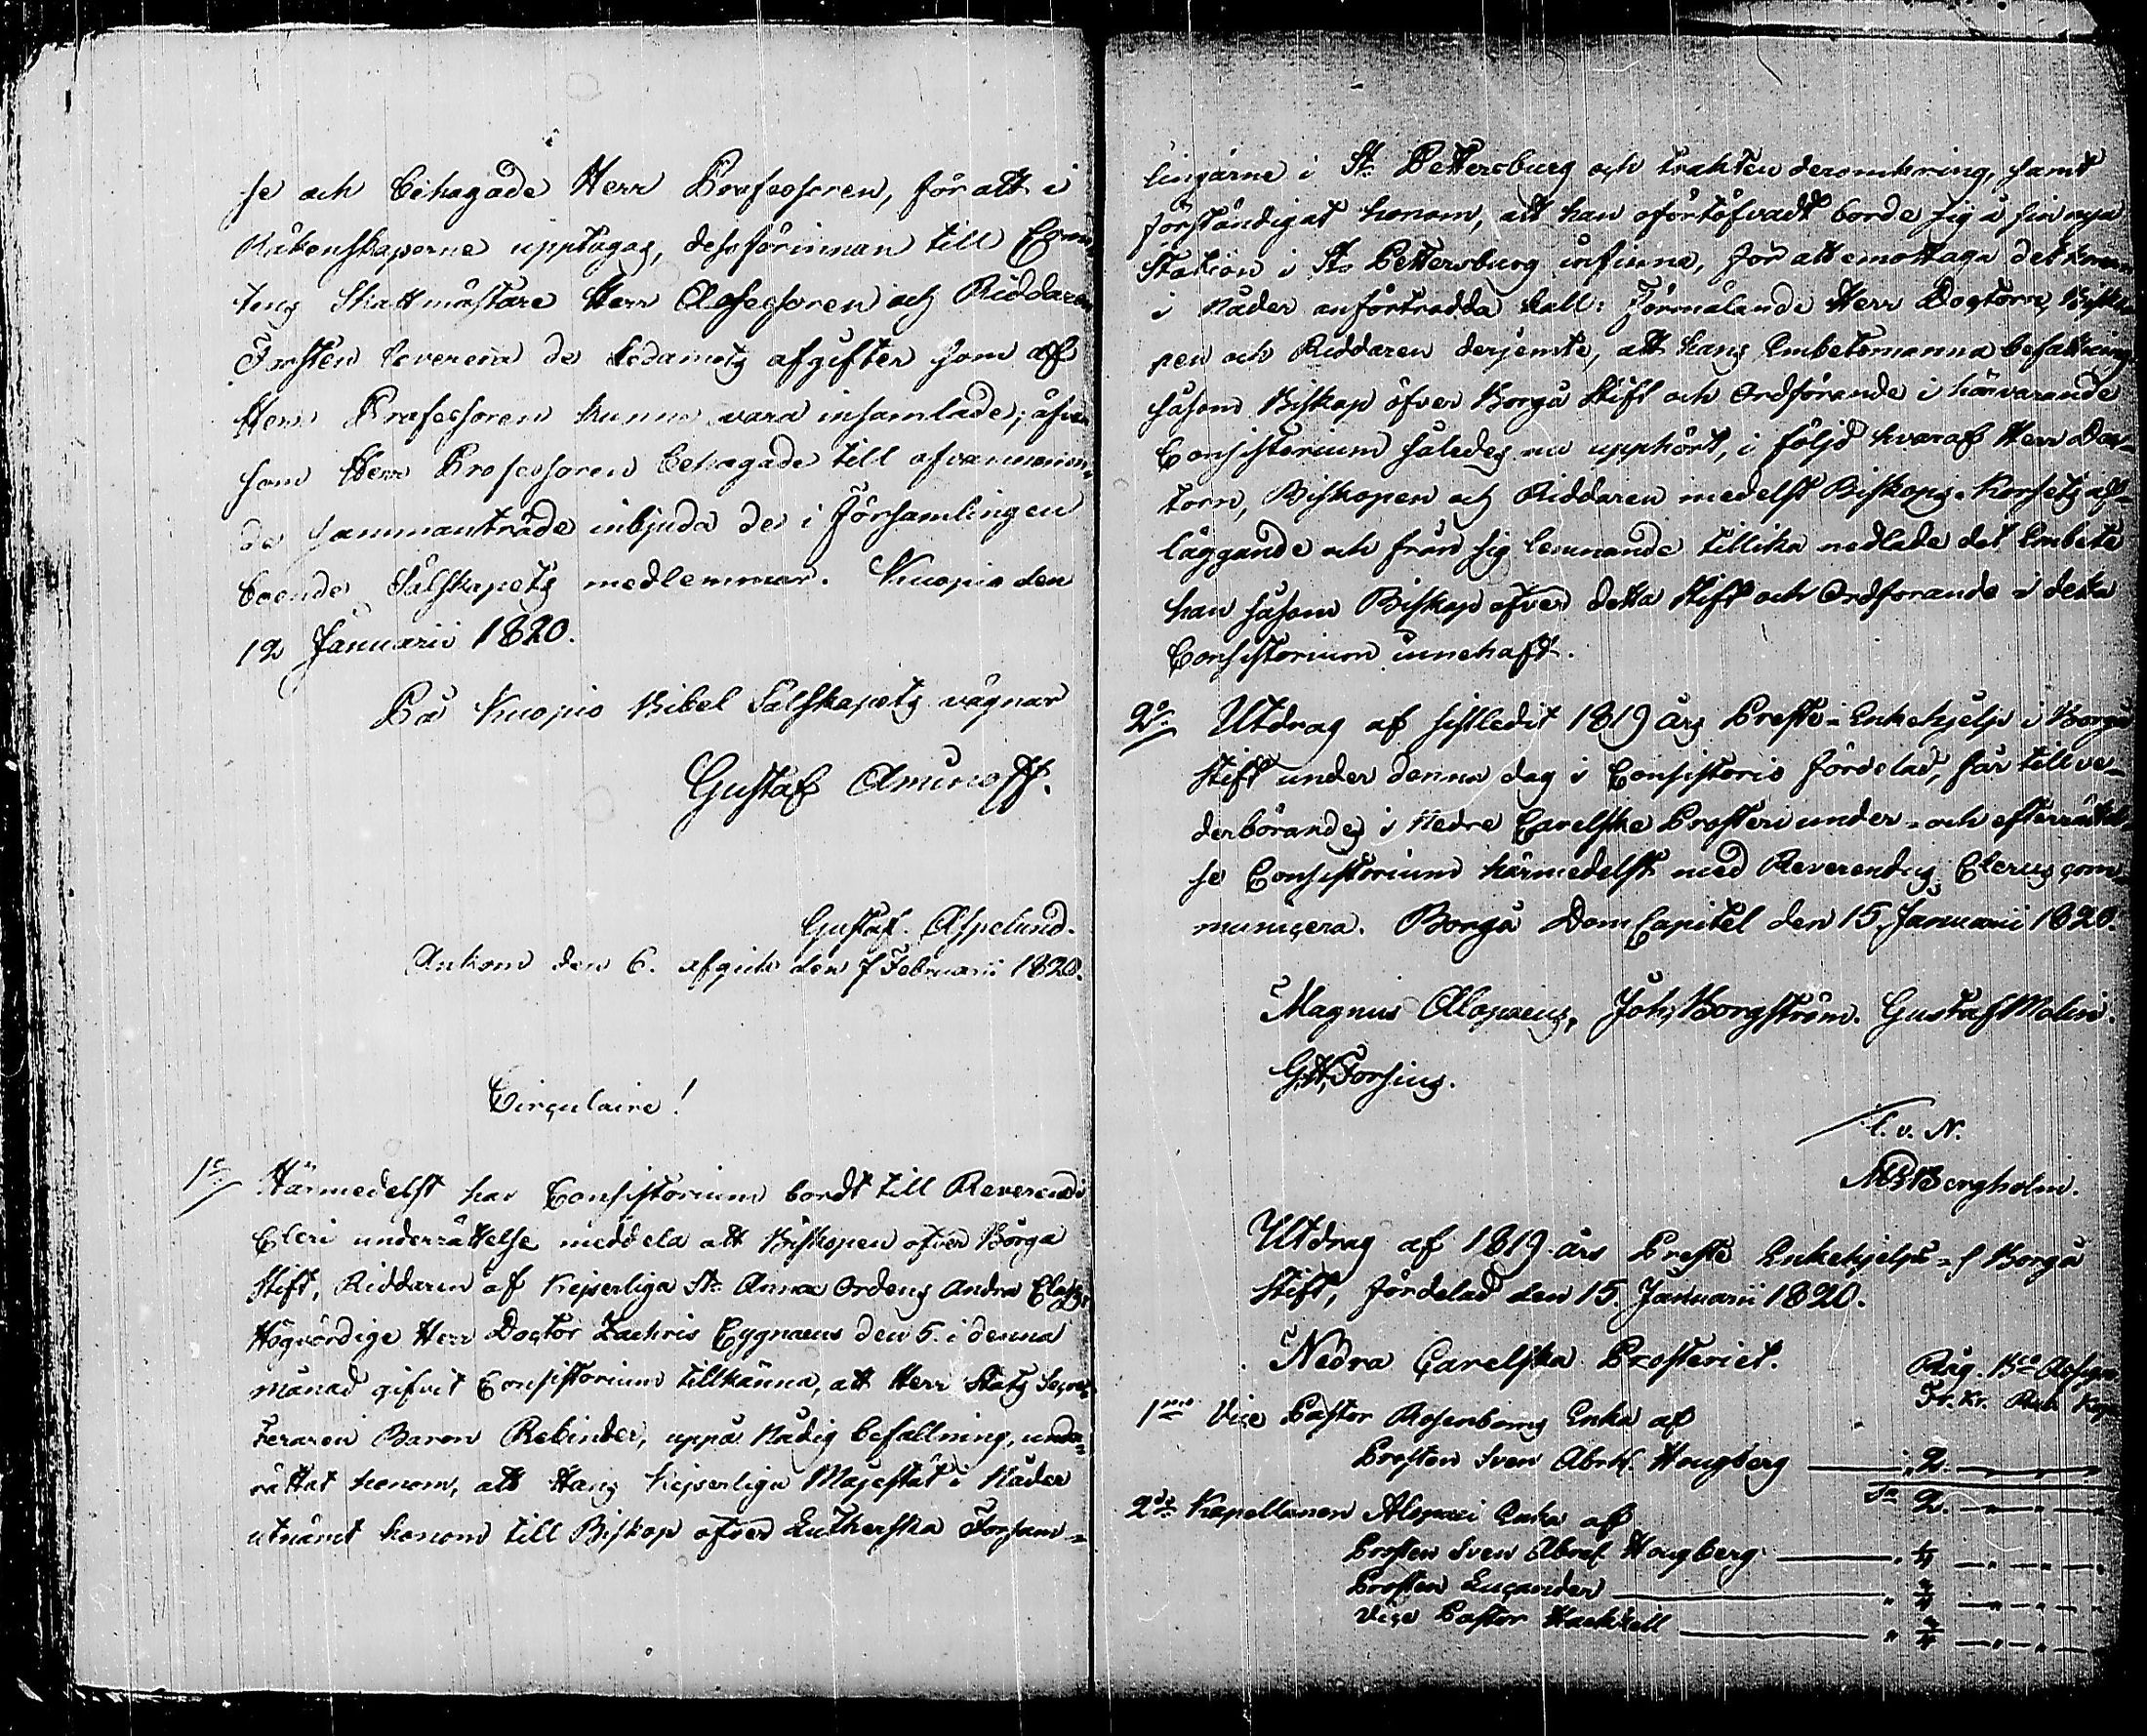 se och behagade Herr Professoren, för att i
Räkenskaperne upptagas, dessförinnan till Comi¬
tens Skattmästare Herr Assessoren och Riddaren
Forstén leverera de Ledamots afgifter som af
Herr Professoren kunna vara insamlade; äfven
som Herr Professoren behagade till ofvannämn¬
de sammanträde inbjuda de i Församlingen
boende Sälskapets medlemmar. Kuopio den
12 Januarii 1820.
På Kuopio Bibel Sälskapets vägnar
Gustaf Aminoff.
Gustaf Aspelund.
Ankom den 6. afgick den 7 Februarii 1820.
Circulaire!
1o Härmedelst har Consistorium bordt till Reverendi
Cleri underrättelse meddela att Biskopen öfver Borgå
Stift, Riddaren af Kejserliga St. Annæ Ordens Andra Class,
Högvördige Herr Doctor Zachris Cygnaeus den 5. i denna
månad gifvit Consistorium tillkänna, att Herr Stats Secre¬
teraren Baron Rebinder, uppå Nådig befallning, under¬
rättat honom, att Hans Kejserliga Majestät i Nåder
utnämt honom till Biskop öfver Lutherska Försam¬
lingarne i St. Pettersburg och trakten deromkring, samt
förständigat honom, att han oförtöfvadt borde sig å sin nya
Station i St. Pettersburg infinna, för att emottaga det honom
i Nåder anförtrodda kall: Förmälande Herr Doctorn, Bisko¬
pen och Riddaren derjemte, att hans Embetsmanna befattning
såsom Biskop öfver Borgå Stift och Ordförande i härvarande
Consistorium således nu upphört, i följd hvaraf Herr Doc¬
torn, Biskopen och Riddaren medelst Biskops-Korsets af¬
läggande och från sig lemnande tillika nedlade det Embete
han såsom Biskop öfver detta Stift och Ordförande i detta
Consistorium innehaft.
2o Utdrag af sistledit 1819 års Preste-Enkehjelp i Borgå
Stift under denna dag i Consistorio fördelad, får till ve¬
derbörandes i Nedre Carelske Prosteri under- och efterrättel¬
se Consistorium härmedelst med Reverendus Clerus com¬
municera. Borgå Dom Capitel den 15. Januarii 1820.
Magnus Alopaeus, Joh. Borgström. Gustaf Molin.
G. H. Forsius.
/ L. v. N.
Bergholm.
Utdrag af 1819 års Preste Enkehjelp i Borgå
Stift, fördelad den 15. Januarii 1820.
Nedra Carelska Prosteriet.
Rüg. Bco Assign.
Tr. Kr. Rub. Kop.
1mo Vice Pastor Rosenborns Enka af
Prosten Sven Abrah. Hougberg — 2. — „ — „
Sa 2. — „ — „
2do Kapellanen Alopaei Enka af
Prosten Sven Abrah. Hougberg — „ — „ — „
Prosten Lucander — „ — „ — „
Vice Pastor Hackzell — „ — „ — „